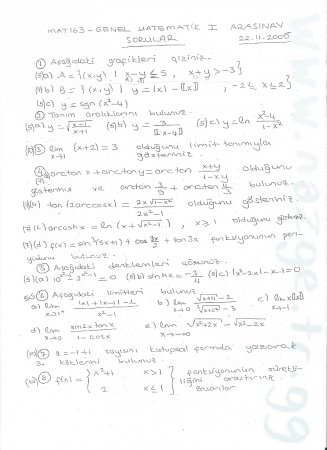 MAT163-GENEL MATEMATİK I ARASINAV
SORULAR 22.11.2006
① Aşağıdaki grafikleri çiziniz.
(5)a) A = {(x,y) | x-y ≤ 5, x+y > -3}
(7)b) B = {(x,y) | y = |x| - ⟦x⟧, -2 ≤ x ≤ 2}
(5)c) y = sgn(x²-4)
② Tanım aralıklarını bulunuz.
(5)a) y = √((x-1)/(x+1)) (5)b) y = 3/⟦x-4⟧ (5)c) y = ln (x²-4)/(1-x²)
(10)③ lim x→1 (x+2) = 3 olduğunu limit tanımıyla
gösteriniz.
④ a) arctan x + arctan y = arctan (x+y)/(1-xy) olduğunu
gösteriniz ve arctan + arctan bulunuz.
(7)(b) tan(2arccosx) = 2x√(1-x²)/(2x²-1) olduğunu gösteriniz.
(7)(c) arccoshx = ln(x+√(x²-1)), x ≥ 1 olduğunu gösteriniz.
(7)(d) f(x) = sin³(5x+1) + cos + tan3x fonksiyonunun peri-
yodunu bulunuz.
⑤ Aşağıdaki denklemleri çözünüz.
(5)a) = 0 (5)b) sinhx = -3/4 (5)c) |x²-2x|-x-1=0
⑥ Aşağıdaki limitleri bulunuz.
a) lim x→1⁺ (|x|+|x-1|-1)/(x²-1) b) lim x→0 (√(x+4)-2)/(√(x+9)-3) c) lim x⟦x⟧ x→-1
d) lim x→0 sin2x tanx/(1-cosx) e) lim x→-∞ √(x²+2x) - √(x²-2x)
(10)⑦ z = -1+i sayısını kutupsal formda yazarak
3. köklerini bulunuz.
(10)⑧ f(x) = { x²+1 x > 1 } fonksiyonunun sürekli-
{ 2 x ≤ 1 } liğini araştırınız.
Başarılar